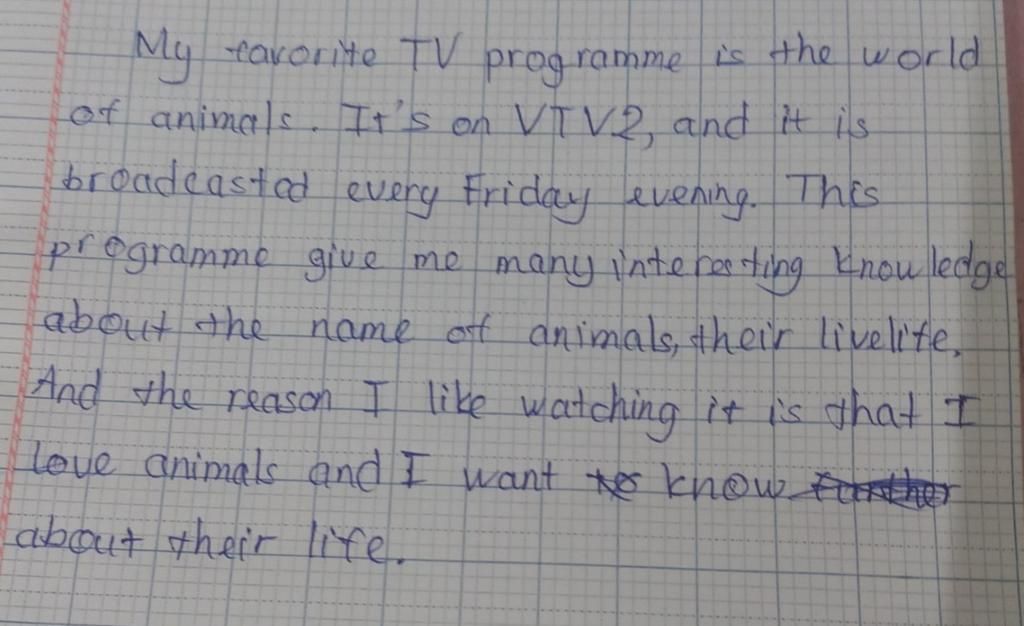 My favorite TV programme is the world
of animals. It's on VTV2, and it is
broadcasted every Friday evening. This
programme give me many interesting knowledge
about the name of animals, their livelife.
And the reason I like watching it is that I
love animals and I want to know
about their life.